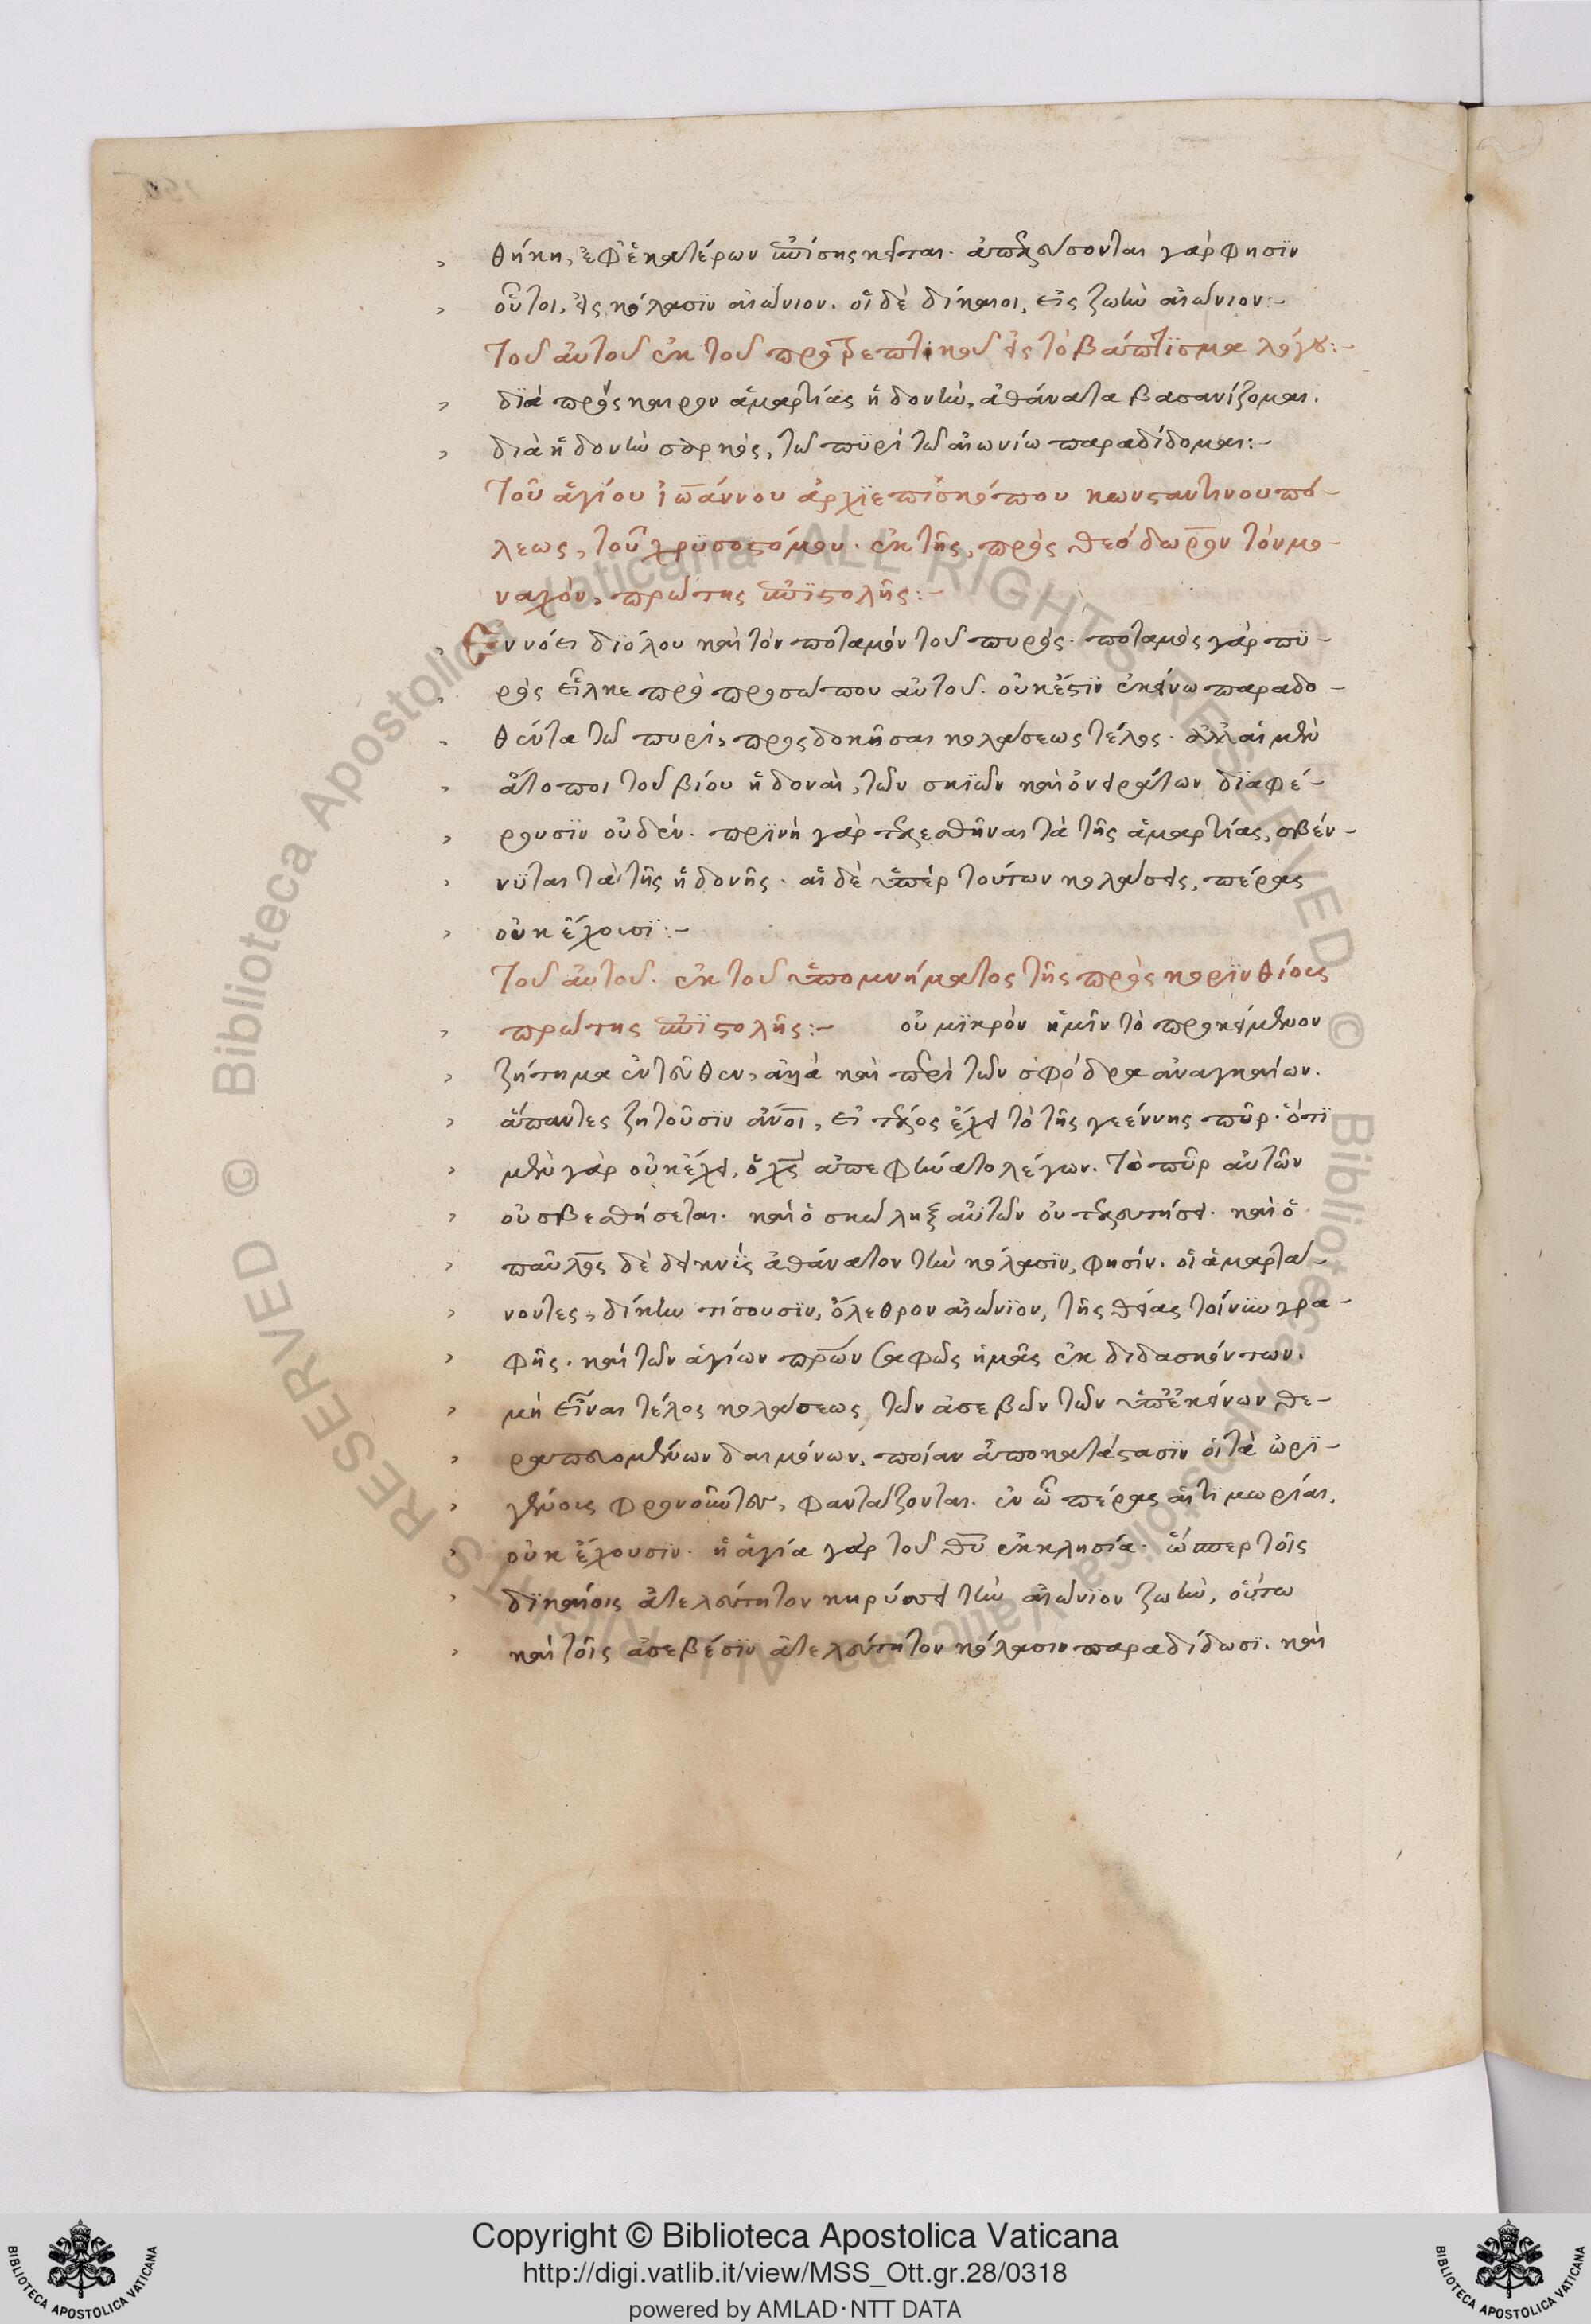 θήκη, ἐφ' ἑκατέρων ἐπίσης κεῖται. ἀπελεύσονται γάρ φησϊν
οὗτοι, εἰς κόλασϊν αἰώνιον. οἱ δὲ δίκαιοι, εἰς ζωὴν αἰώνιον:-
τοῦ αὐτοῦ ἐκ τοῦ προτρεπτικοῦ εἰς τὸ βάπτϊσμα λόγου:-
δϊὰ πρόσκαιρον ἁμαρτίας ἡδονὴν, ἀθάνατα βασανίζομαι.
διὰ ἡδονὴν σαρκὸς, τῶ πϋρὶ τῶ αἰωνίω παραδίδομαι:-
τοῦ ἁγίου ἰωάννου ἀρχϊεπϊσκόπου κωνσταντινουπό-
λεως, τοῦ χρϋσοστόμου. ἐκ τῆς, πρὸς θεόδωρον τὸν μο-
ναχὸν, πρώτης ἐπϊστολῆς:-
Ἐννόει δϊόλου καὶ τὸν ποταμὸν τοῦ πυρός. ποταμὸς γὰρ πϋ-
ρὸς εἷλκε πρὸ προσώπου αὐτοῦ. οὐκ ἔστϊν ἐκείνω παραδο-
θέντα τῶ πυρὶ, προσδοκῆσαι κολάσεως τέλος. ἀλλ' αἱ μὲν
ἄτοποι τοῦ βίου ἡδοναὶ, τῶν σκϊῶν καὶ ὀνειράτων δϊαφέ-
ρουσϊν οὐδέν. πρϊνὴ γὰρ τελεσθῆναι τὰ τῆς ἁμαρτίας, σβέν-
νϋται τὰ τῆς ἡδονῆς. αἱ δὲ ὑπὲρ τούτων κολάσεις, πέρας
οὐκ ἔχουσϊ:-
τοῦ αὐτοῦ. ἐκ τοῦ ὑπομνήματος τῆς πρὸς κορϊνθίους
πρώτης ἐπϊστολῆς:- οὐ μϊκρὸν ἡμῖν τὸ προκείμενον
ζήτημα ἐντεῦθεν, ἀλλὰ καὶ περὶ τῶν σφόδρα ἀναγκαίων.
ἅπαντες ζητοῦσϊν ἄνοι, εἰ τέλος ἔχει τὸ τῆς γεέννης πῦρ. ὅτϊ
μὲν γὰρ οὐκ ἔχει, ὁ χς ἀπεφήνατο λέγων. τὸ πῦρ αὐτῶν
οὐ σβεσθήσεται. καὶ ὁ σκώληξ αὐτῶν οὐ τελευτήσει. καὶ ὁ
παῦλος δὲ δεικνϊὲς ἀθάνατον τὴν κόλασϊν, φησίν. οἱ ἁμαρτά-
νοντες, δίκην τίσουσϊν, ὄλεθρον αἰώνϊον, τῆς θείας τοίνϋν γρα-
φῆς. καὶ τῶν ἁγίων πρῶν σαφῶς ἡμᾶς ἐκδιδασκόντων.
μὴ εἶναι τέλος κολάσεως, τῶν ἀσεβῶν τῶν ὑπ' ἐκείνων θε-
ραπευομένων δαιμόνων, ποίαν ἀποκατάστασϊν οἱ τὰ ὠρϊ-
γένους φρονοῦντες, φαντάζονται. ἐν ὧ πέρας αἱ τϊμωρίαι,
οὐκ ἔχουσϊν. ἡ ἁγία γὰρ τοῦ θυ ἐκκλησία. ὥσπερ τοῖς
δϊκαίοις ἀτελεύτητον κηρύσσει τὴν αἰώνϊον ζωὴν, οὕτω
καὶ τοῖς ἀσεβέσϊν ἀτελεύτητον κόλασιν παραδίδωσϊ. καὶ
© Biblioteca Apostolica Vaticana ALL RIGHTS RESERVED
© Biblioteca Apostolica Vaticana ALL RIGHTS RESERVED
Copyright © Biblioteca Apostolica Vaticana
http://digi.vatlib.it/view/MSS_Ott.gr.28/0318
powered by AMLAD·NTT DATA
BIBLIOTECA APOSTOLICA VATICANA
BIBLIOTECA APOSTOLICA VATICANA